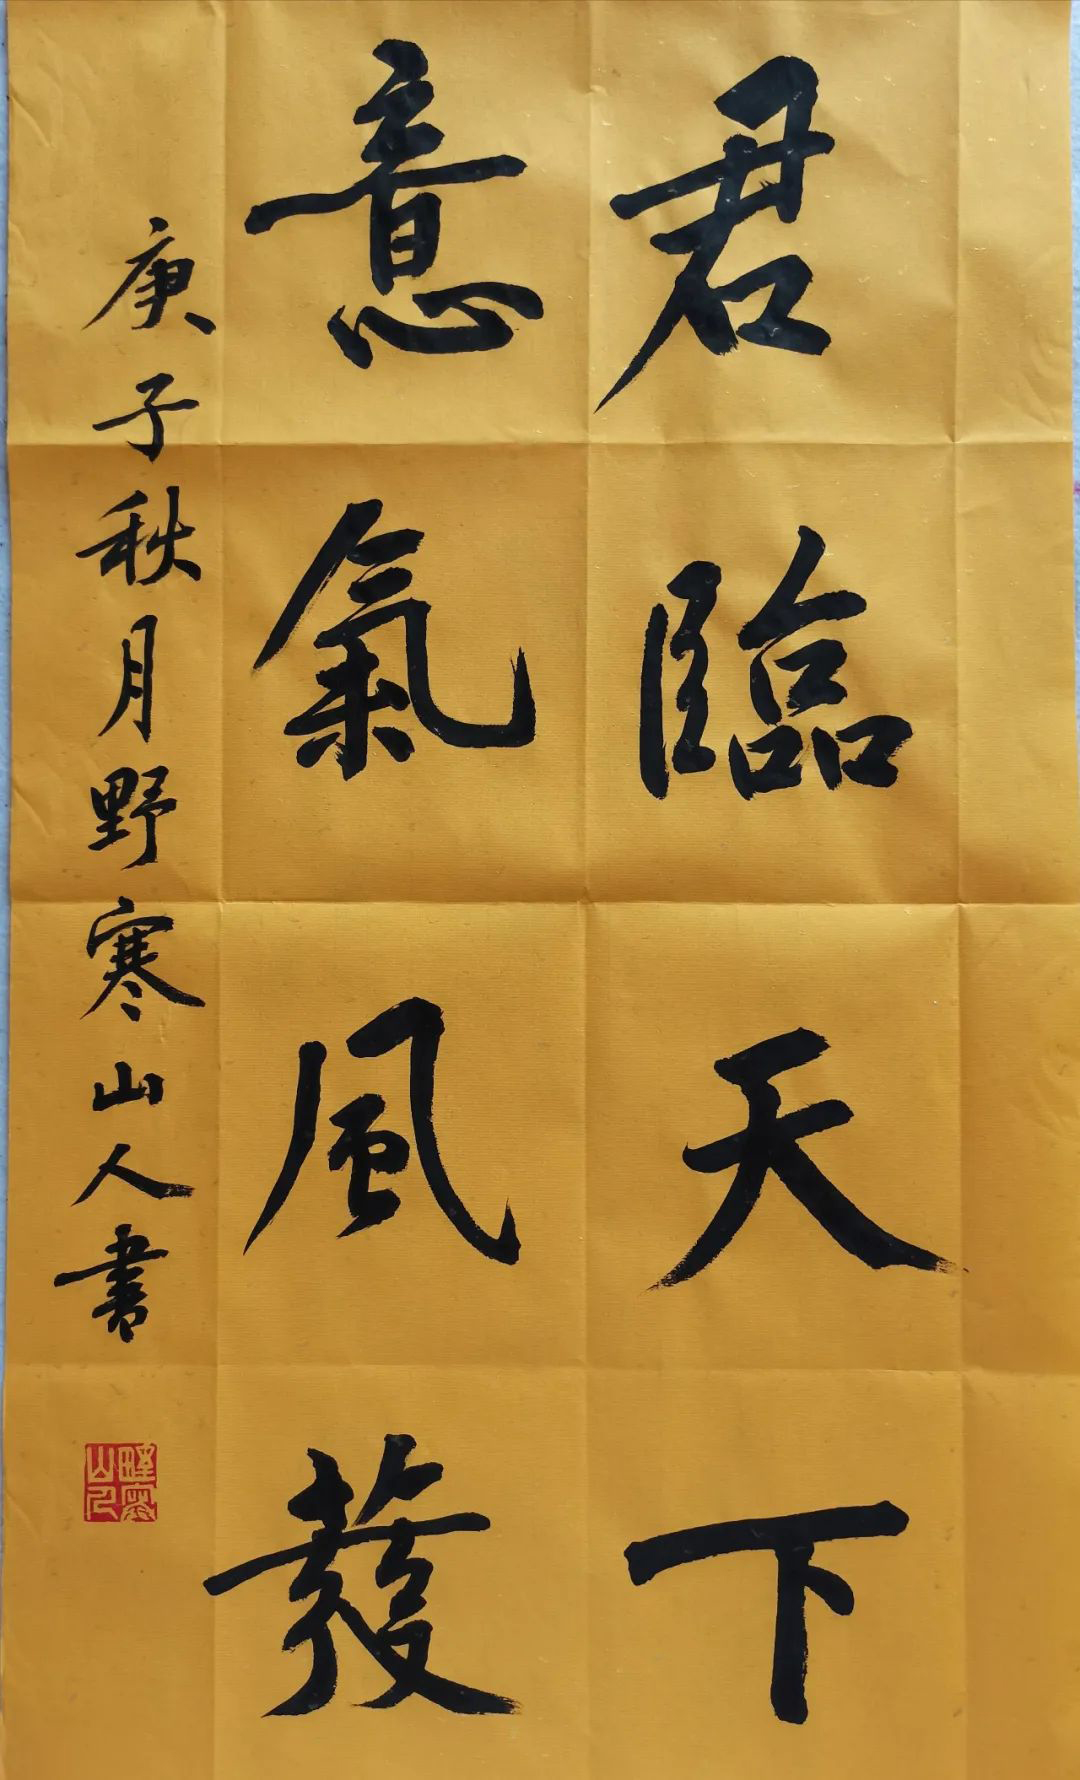 君臨天下
意氣風發
庚子秋月野寒山人書
野寒山人